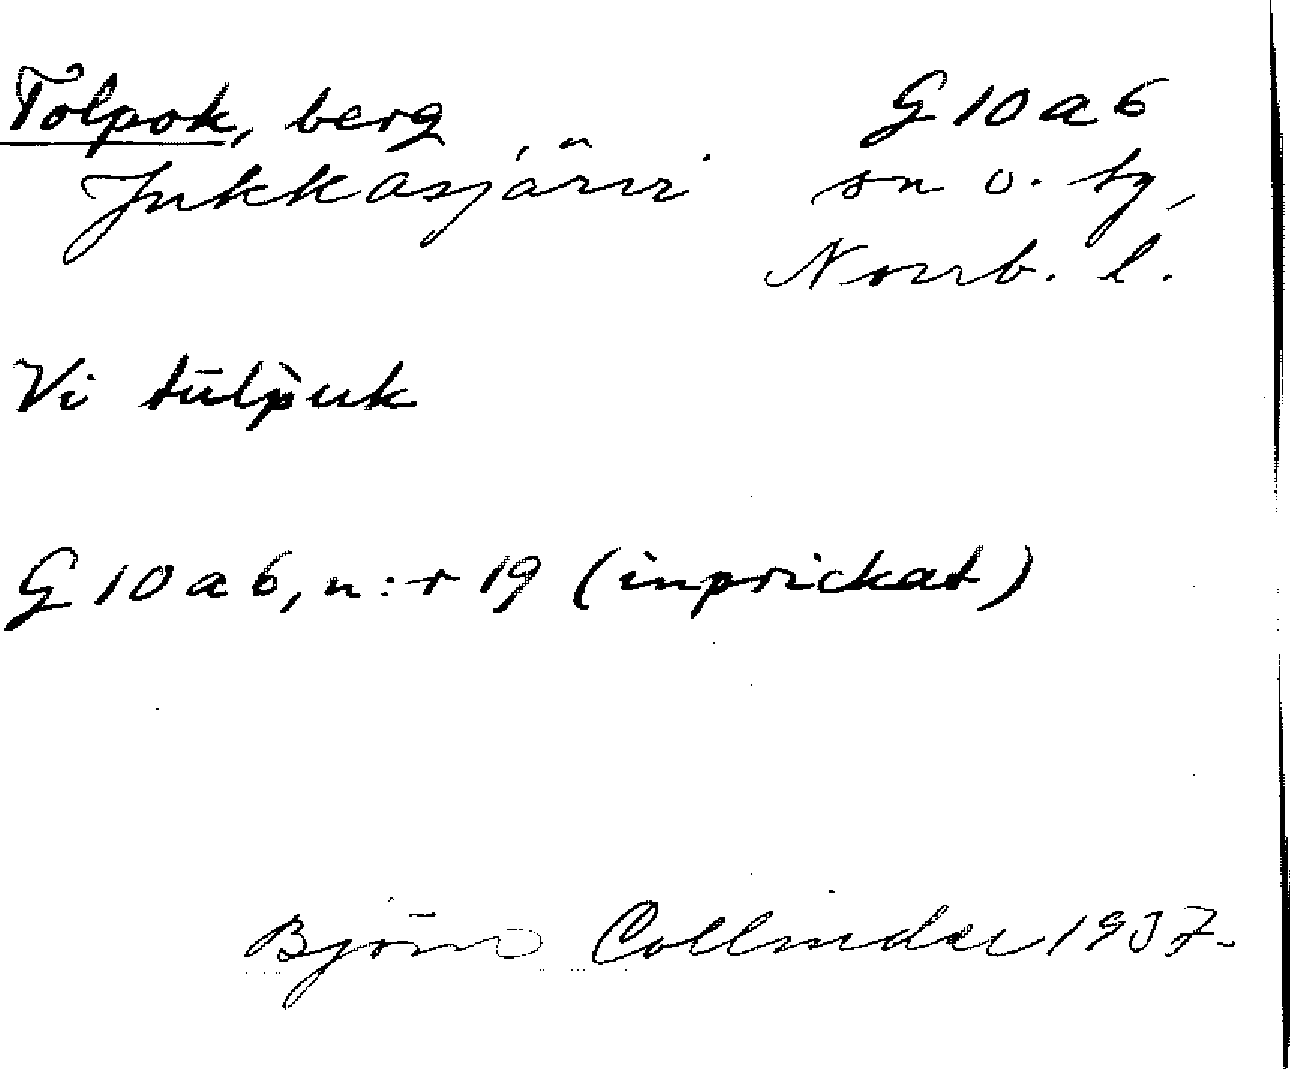 Tolpok, berg G 10 a 6
Jukkasjärvi sn o. tg,
Norrb. l.
Vi tūlpuk
G 10 a 6, n:r 19 (inprickat)
Björn Collinder 1937.